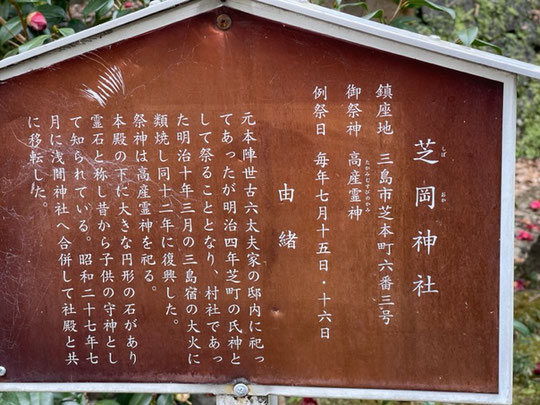 芝岡神社
しば おか
鎮座地 三島市芝本町六番三号
御祭神 高産霊神
たかみむすびのかみ
例祭日 毎年七月十五日・十六日
由緒
元本陣世古六太夫家の邸内に祀っ
てあったが明治四年芝町の氏神と
して祭ることとなり、村社であっ
た明治十年三月の三島宿の大火に
類焼し同十二年に復興した。
祭神は高産霊神を祀る。
本殿の下に大きな円形の石があり
霊石と称し昔から子供の守神とし
て知られている。昭和二十七年七
月に浅間神社へ合併して社殿と共
に移転した。